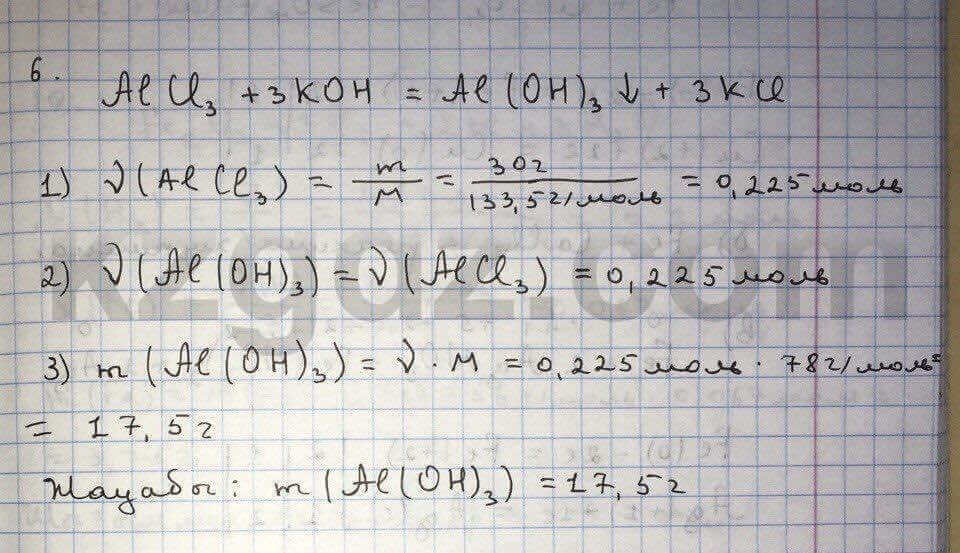 6.
AlCl₃ + 3KOH = Al(OH)₃↓ + 3KCl
1) ν(AlCl₃) = m/M = 30г/133,5г/моль = 0,225моль
2) ν(Al(OH)₃) = ν(AlCl₃) = 0,225моль
3) m(Al(OH)₃) = ν · M = 0,225моль · 78г/моль =
= 17,5г
Жауабы: m(Al(OH)₃) = 17,5г